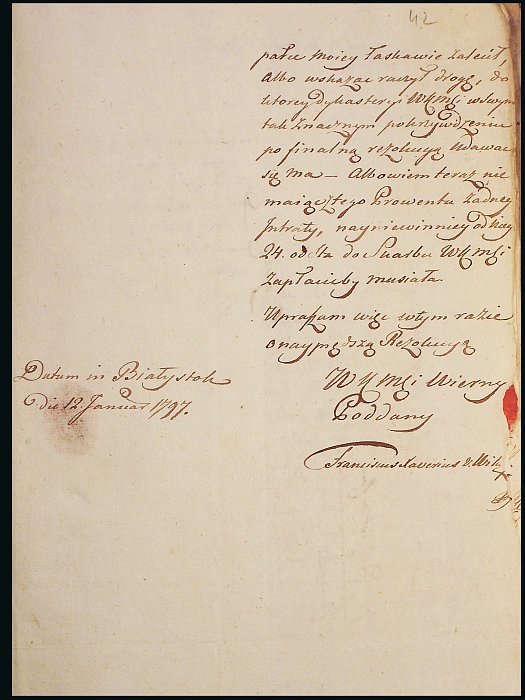 42
pałce moiey łaskawie zalecił,
Albo wskazac raczył drogę, do
ktorey dykasteryi WKMsci w swym
tak znacznym pokrzywdzeniu
po finalną rezolucyą udawac
się ma — Albowiem teraz nie
maiąc z tego Prowentu żadney
Intraty, nayniewinniey od
24. od sta do Skarbu WKMsci
zapłacicby musiała.
Upraszam więc w tym razie
o nayprędszą Rezolucyą
WKMsci Wierny
Poddany
Datum in Białystok
die 12 Januar 1797.
Franciscus Xaverius v.